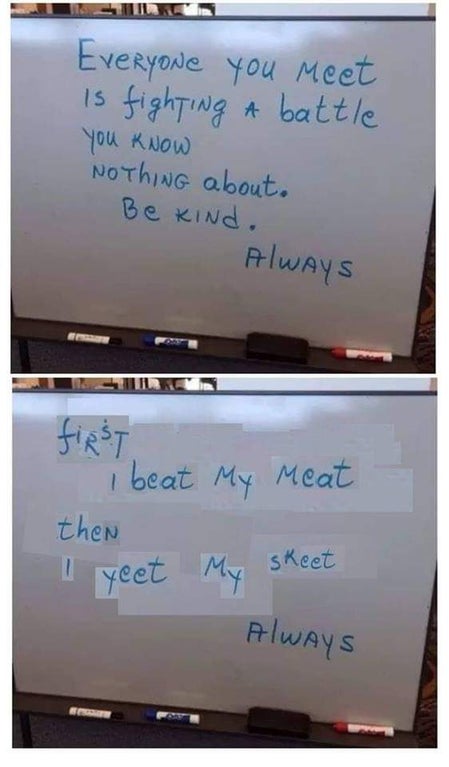 EVERYONE YOU MEET
IS fighTING A battle
you KNOW
NOThING about.
BE KINd.
AlwAYS
fiRST
I beat My Meat
theN
I yeet My sKeet
AlwAYS